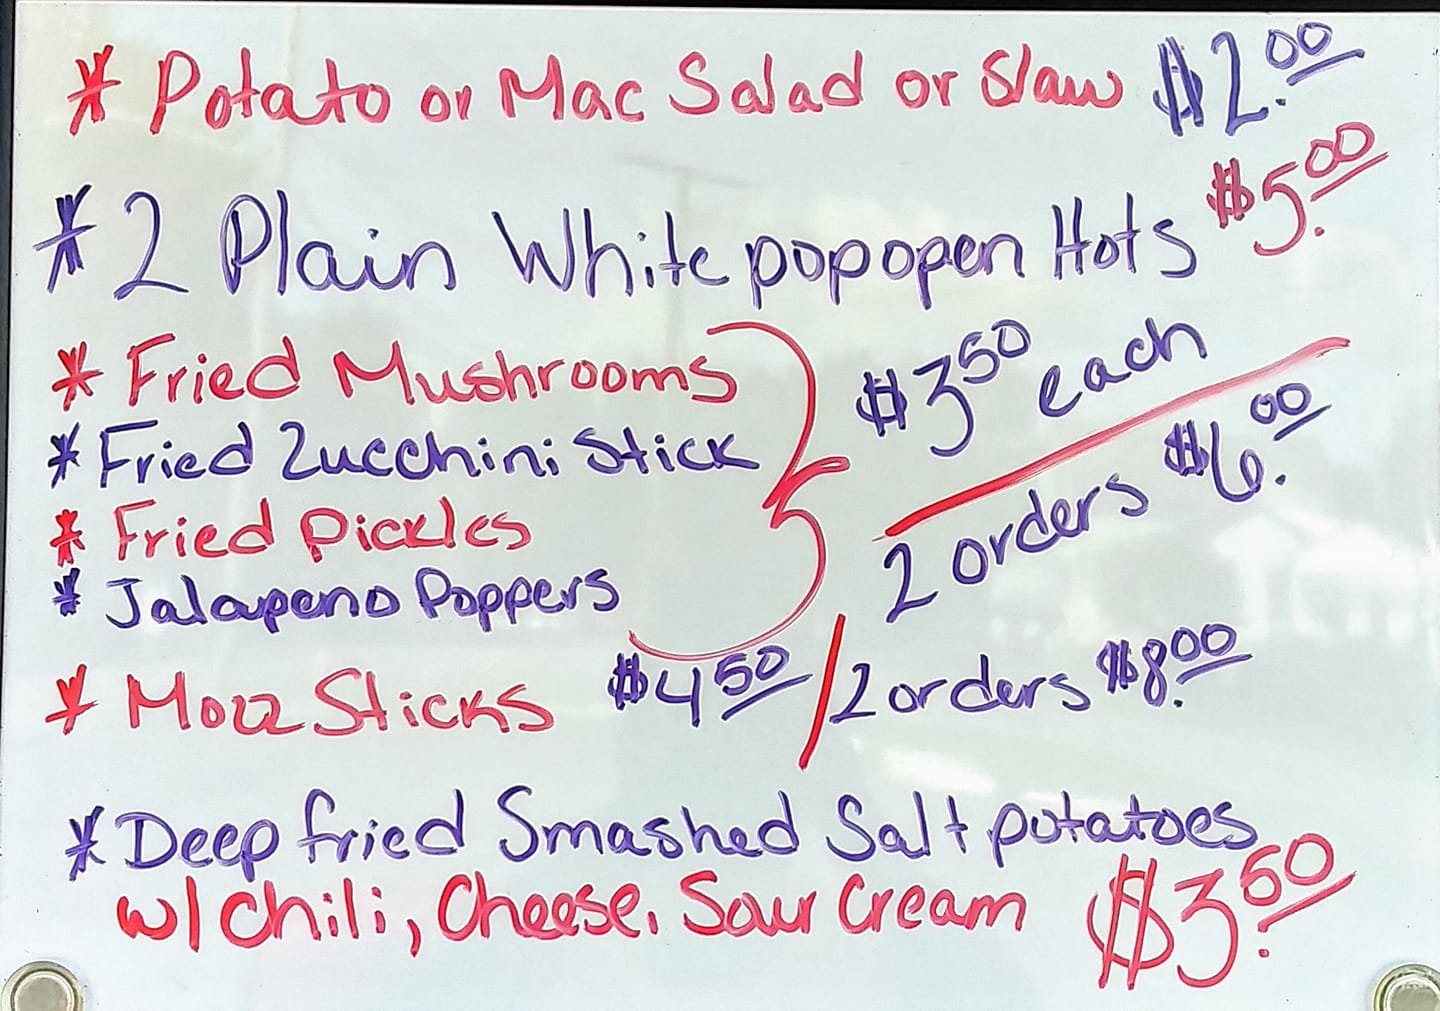 * Potato or Mac Salad or Slaw $2.00
* 2 Plain White pop open Hots $5.00
* Fried Mushrooms
* Fried Zucchini Stick
* Fried Pickles
* Jalapeno Poppers
$3.50 each
2 orders $6.00
* Mozz Sticks $4.50 / 2 orders $8.00
* Deep fried Smashed Salt potatoes
w/ chili, Cheese, Sour Cream $3.50